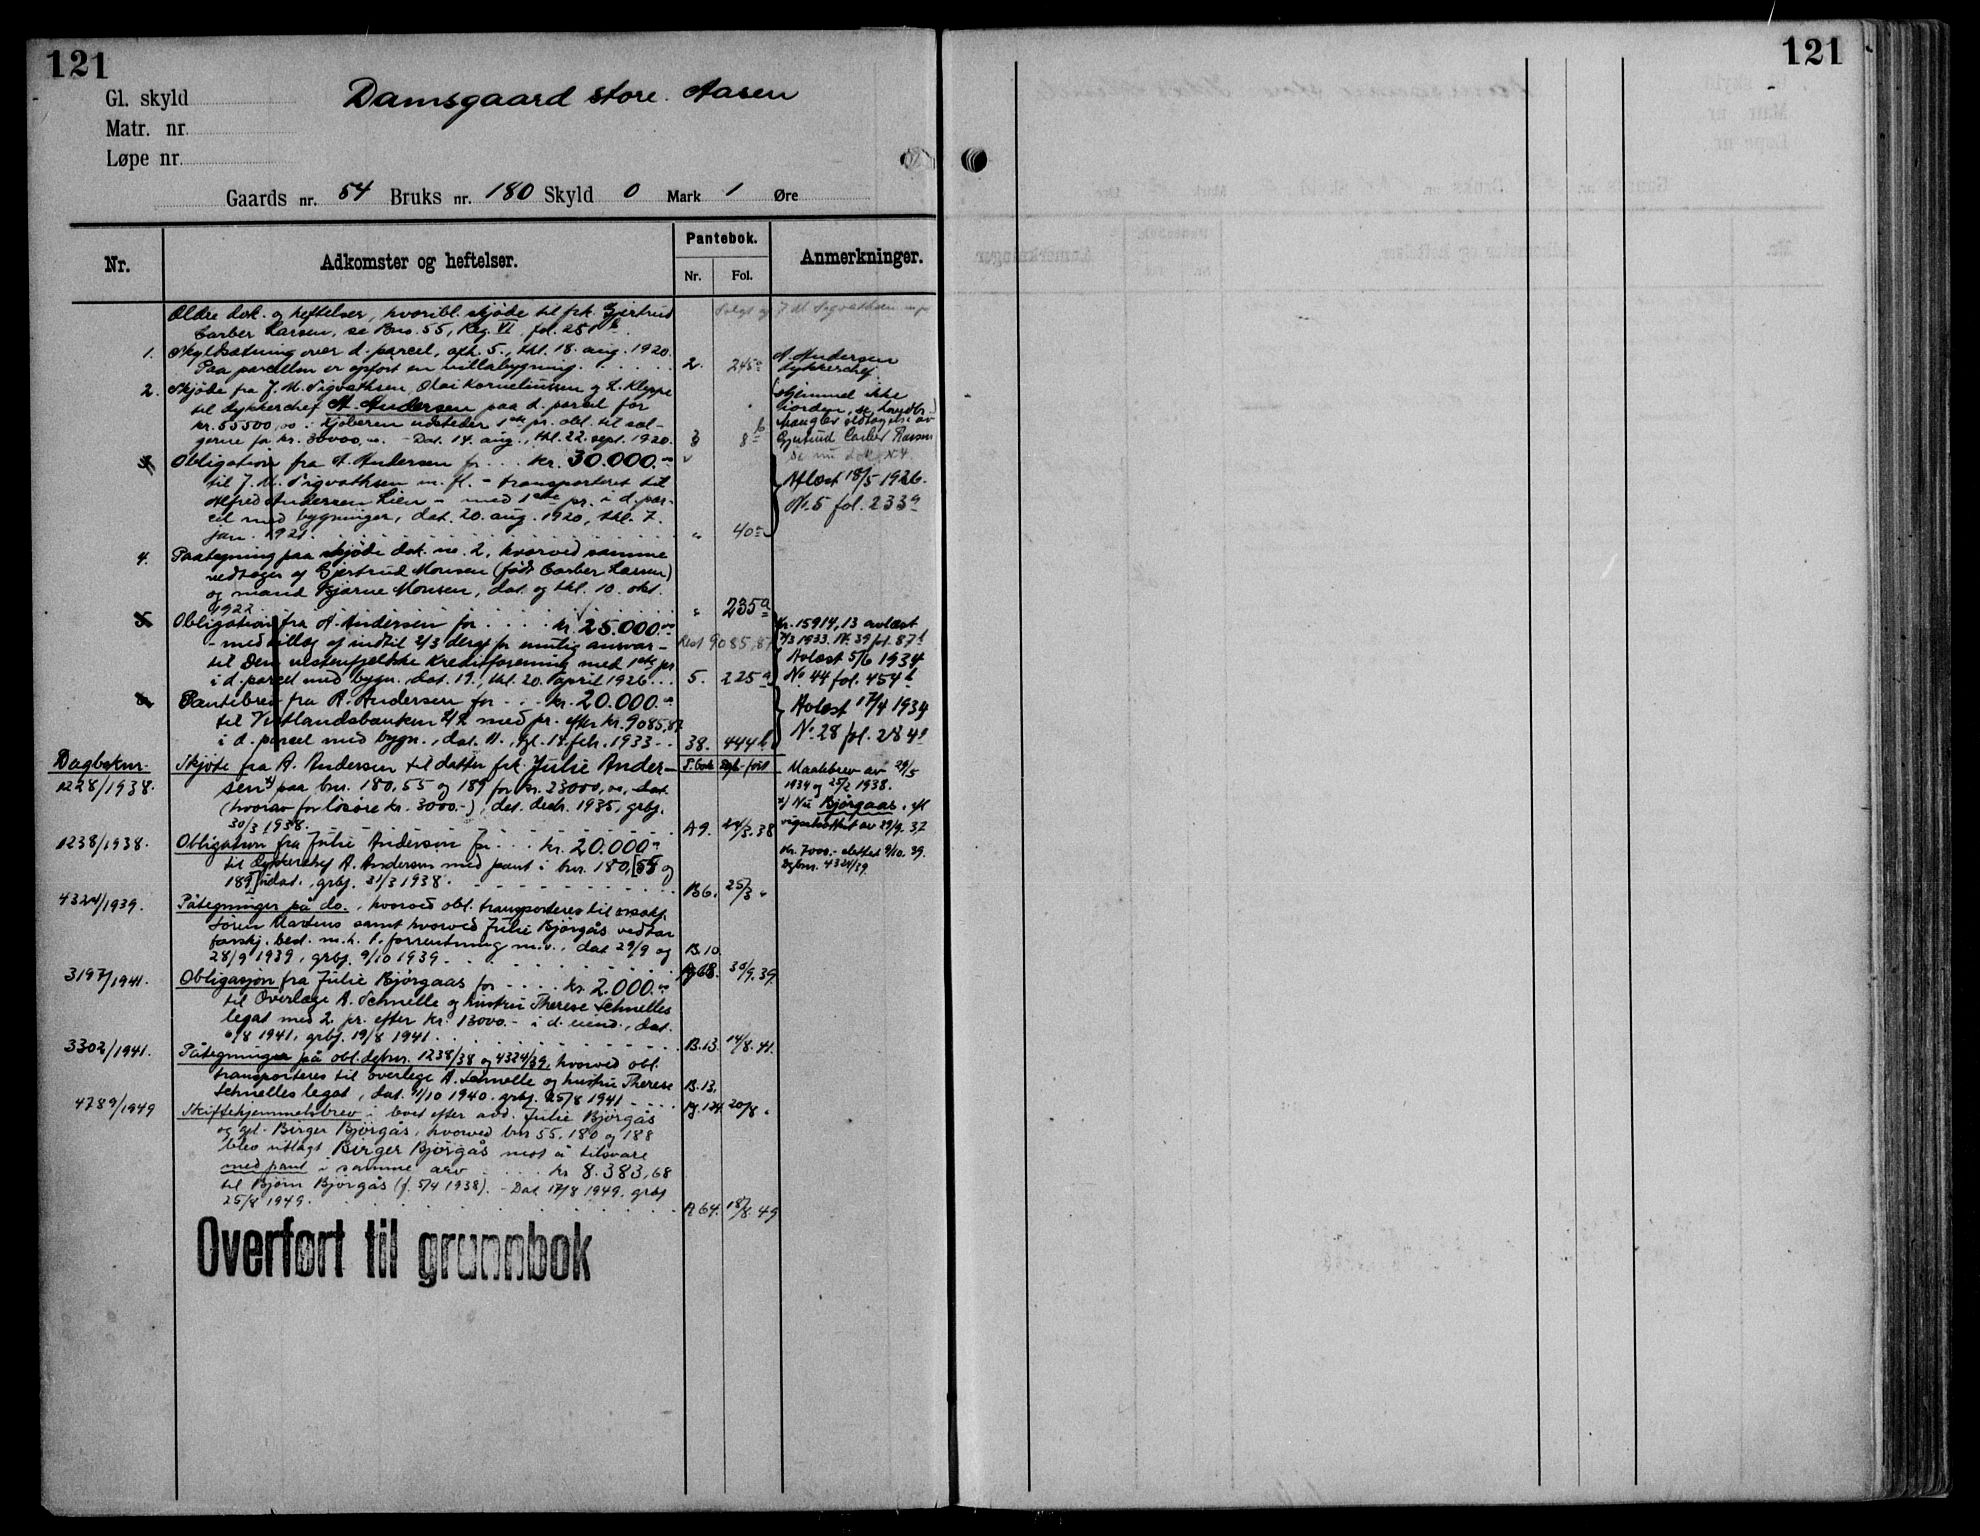 121
Gl. skyld
Damsgaard store. Aasen
Matr. nr.
Løpe nr.
Gaards nr. 54 Bruks nr. 180 Skyld 0 Mark 1 Øre
Nr.
Adkomster og heftelser.
Pantebok.
Nr. Fol.
Anmerkninger.
Ældre dok. og heftelser, hvoribl. skjøde til frk. Gjertrud
Carber Larsen, se Bno. 55, Reg. VI fol. 251 b.
1. Skyldsætning over d. parcel, afh. 5., thl. 18. aug. 1920.
Paa parcellen er opført en villabygning. 2. 245 a
A. Andersen
dykkerchef
2. Skjøde fra J. M. Sigvathsen, Olai Korneliussen og L. Kleppe
til dykkerchef A. Andersen paa d. parcel for
kr. 55500,00. Kjøberen utsteder 1ste pr. obl. til sæl-
gerne for kr. 30000,00. – Dat. 14. aug., thl. 22. sept. 1920. 3 8 b
Hjemmel ikke
i orden, se
mangler vedtagelse av
Gjertrud Carber Larsen
Se nu dok. N. 4.
3. Obligation fra A. Andersen for . . . kr. 30.000.00
til J. M. Sigvathsen m. fl. – transporteret til
Alfred Andersen Lien – med 1ste pr. i d. par-
cel med bygninger, dat. 20. aug. 1920, thl. 7.
jan. 1921. " 40 a
Avlæst 18/5 1926.
N. 5 fol. 233 a
4. Paategning paa skjøde dok. nr. 2, hvorved samme
vedtages af Gjertrud Monsen (født Carber Larsen)
og mand Bjarne Monsen, dat. og thl. 10. okt.
1922. " 235 a
5. Obligation fra A. Andersen for . . . kr. 25.000.00
– med tillæg af indtil 2/3 deraf for mulig ansvar –
til Den vestenfjeldske Kreditforening med 1ste pr.
i d. parcel med bygn. dat. 19., thl. 20. april 1926 . . 5. 225 a
Rest 9085,87
Kr. 15914,13 avlæst
3/3 1933. N. 39 fol. 87 b
Avlæst 5/6 1934
No 44 fol. 454 b
6. Pantebrev fra A. Andersen for . . . kr. 20.000.00
til Vestlandsbanken A/L med pr. efter kr. 9085.87
i d. parcel med bygn., dat. 11., tgl. 14. febr. 1933 . . 38. 444 b
Avlæst 17/4 1934
N. 28 fol. 284 a
Dagboknr.
P. bok Dgb.-fort
1228/1938. Skjøte fra A. Andersen til datter frk. Julie Ander-
sen x) paa bnr. 180, 55 og 189 for kr. 23000,00, dat.
(hvorav for løsøre kr. 3000.–), dat. decbr. 1935, grbf.
30/3 1938. A 9. 24/3. 38
Maalebrev av 29/5
1934 og 25/2 1938.
x) Nu Bjørgaas, efl.
vigselsattest av 29/9. 37
1238/1938. Obligation fra Julie Andersen for . . . kr. 20.000.00
til dykkerchef A. Andersen med pant i bnr. 180, [55 og
189] udat., grbf. 31/3 1938. B 6. 25/3 "
Kr. 7000.– slettet 9/10. 39.
Dgbnr. 4324/39.
4324/1939. Påtegninger på do., hvorved obl. transporteres til
Søren Martens samt hvorved Julie Bjørgås vedtar
forskj. best. m. h. t. forrentning m. v., dat. 29/9 og
28/9 1939, grbf. 9/10 1939. B. 10 30/9. 39.
3197/1941. Obligasjon fra Julie Bjørgaas for . . . kr. 2.000.00
til Overlæge A. Schnelle og hustru Therese Schnelles
legat med 2. pr. efter kr. 13000.– i d. eiend., dat.
6/8 1941, grbf. 19/8 1941. B. 13. 14/8. 41.
3302/1941. Påtegninger på obl. dgbnr. 1238/38 og 4324/39, hvorved obl.
transporteres til overlege A. Schnelle og hustru Therese
Schnelles legat, dat. 11/10 1940. grbf. 25/8 1941 B. 13. 20/8 "
4289/1949 Skiftehjemmelsbrev i boet efter avd. Julie Bjørgås
og gjl. Birger Bjørgås, hvorved bnr 55, 180 og 188
blev utlagt Birger Bjørgås mot å tilsvare
med pant i samme arv . . . kr 8.383,68
til Bjørn Bjørgås (f. 5/4 1938). – Dat 17/8 1949, grbf
25/8 1949. A 64. 18/8. 49
Overført til grunnbok
121